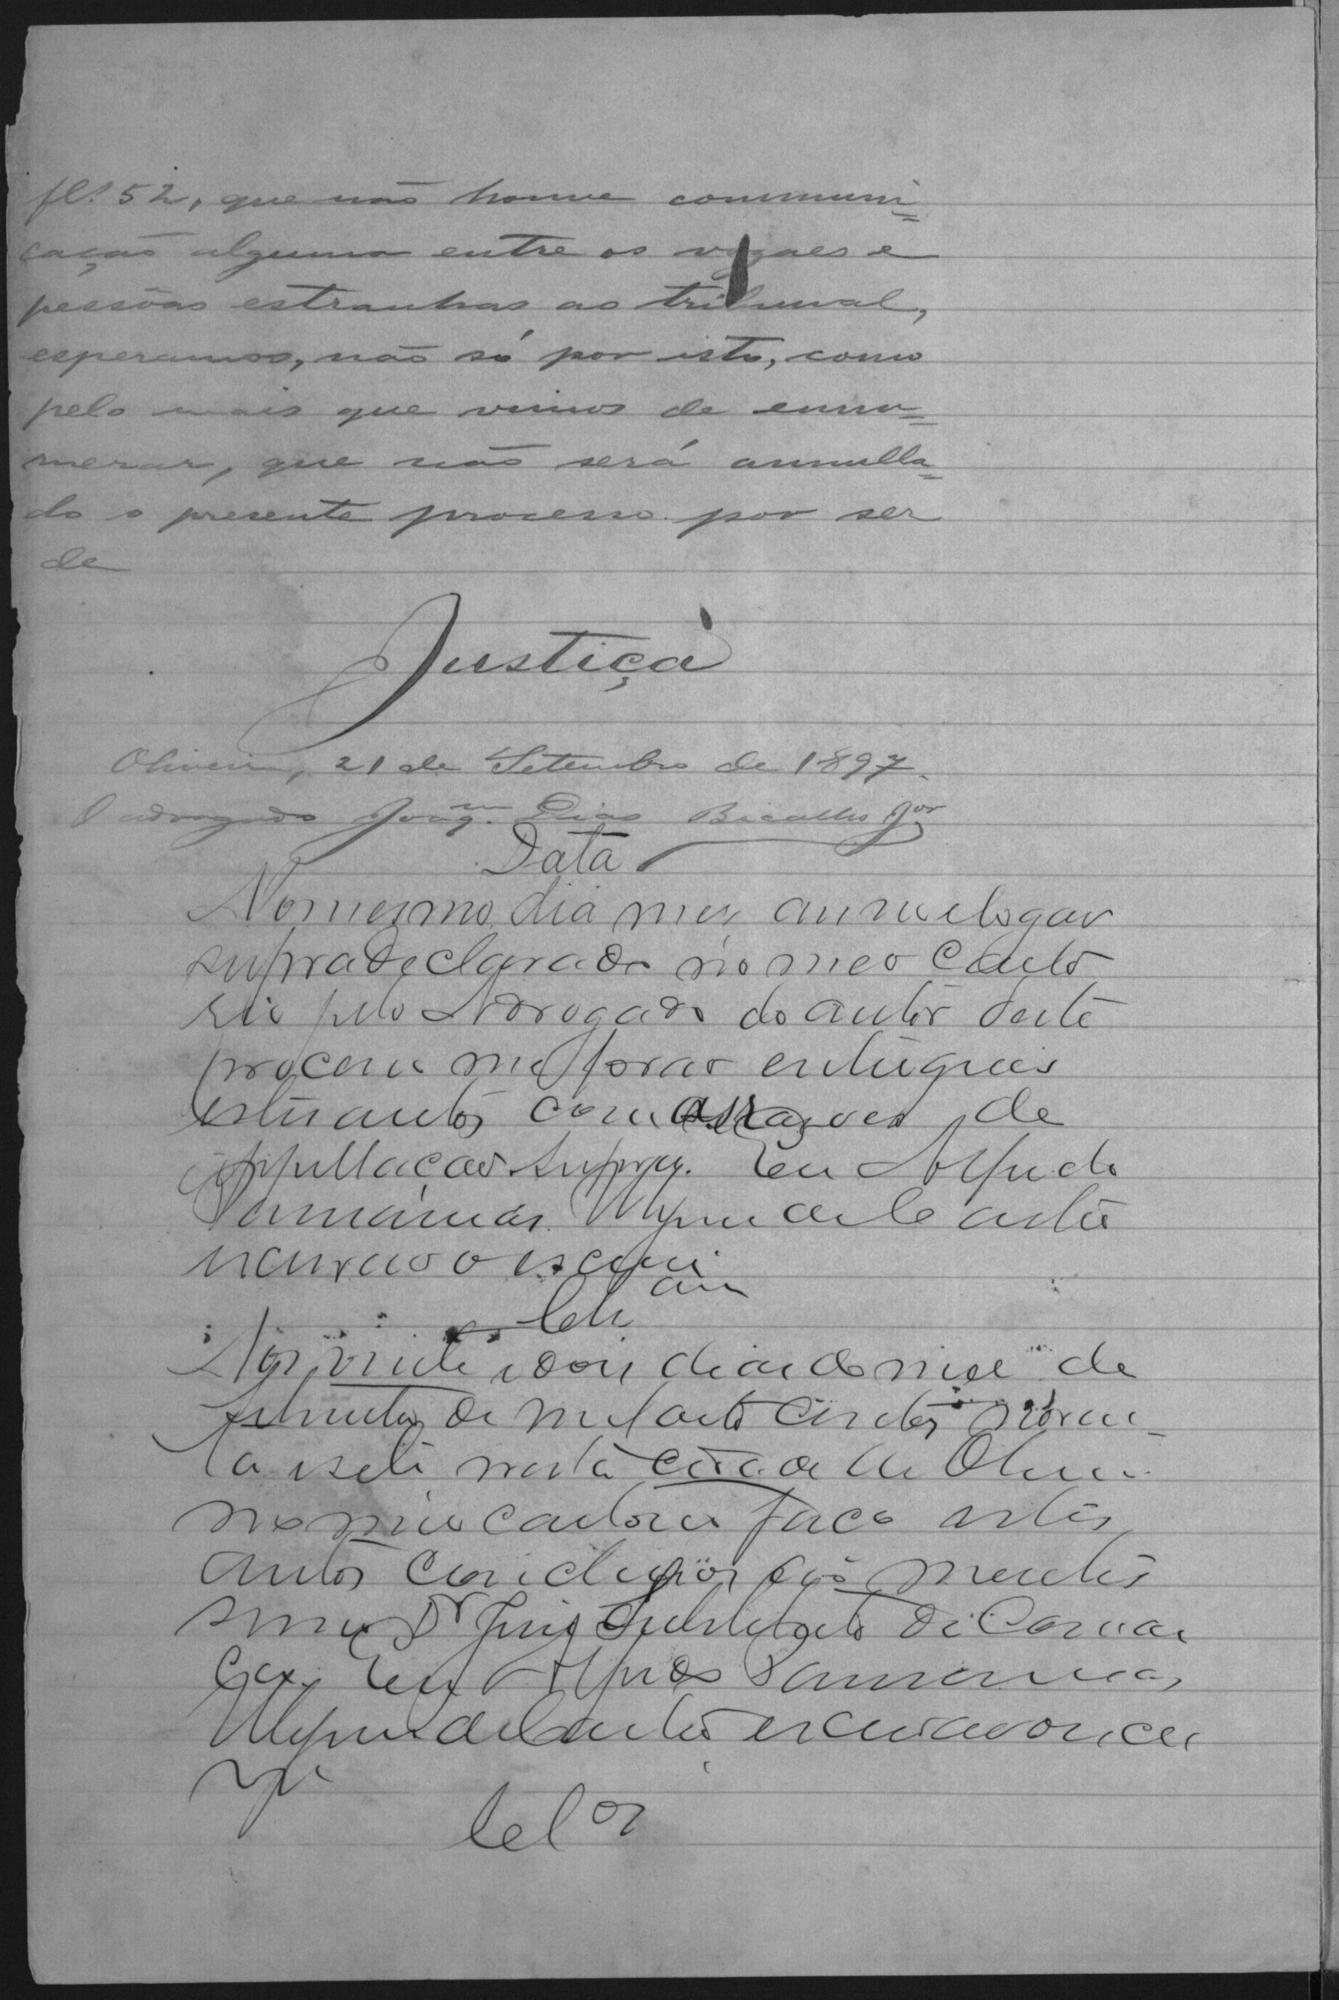 fl. 52, que não houve communi=
cação alguma entre os vogaes e
pessôas estranhas ao tribunal,
esperamos, não só por isto, como
pelo mais que vimos de enu=
merar, que não será annulla=
do o presente processo por ser
de
Justiça
Oliveira, 21 de Setembro de 1897.
O advogado Joaqm. Dias Bicalho Jor
Data
No mesmo dia mes anno e logar
supra declarado no meo Carto
rio pelo Advogado do autor deste
processo me forão entregues
estes autos com as rasoes de
appellação supra. Eu Alfredo
escrivão o escrevi
Clsam
Aos vinte e dois dias do mes de
Setembro de mil oito centos noven
ta e sete nesta cidade de Olivei
no meu cartorio faço estes
autos conclusos ao
Dr Juiz Substituto da Comar
ca. Eu Alfredo
escrivão o escre
vi
Clos